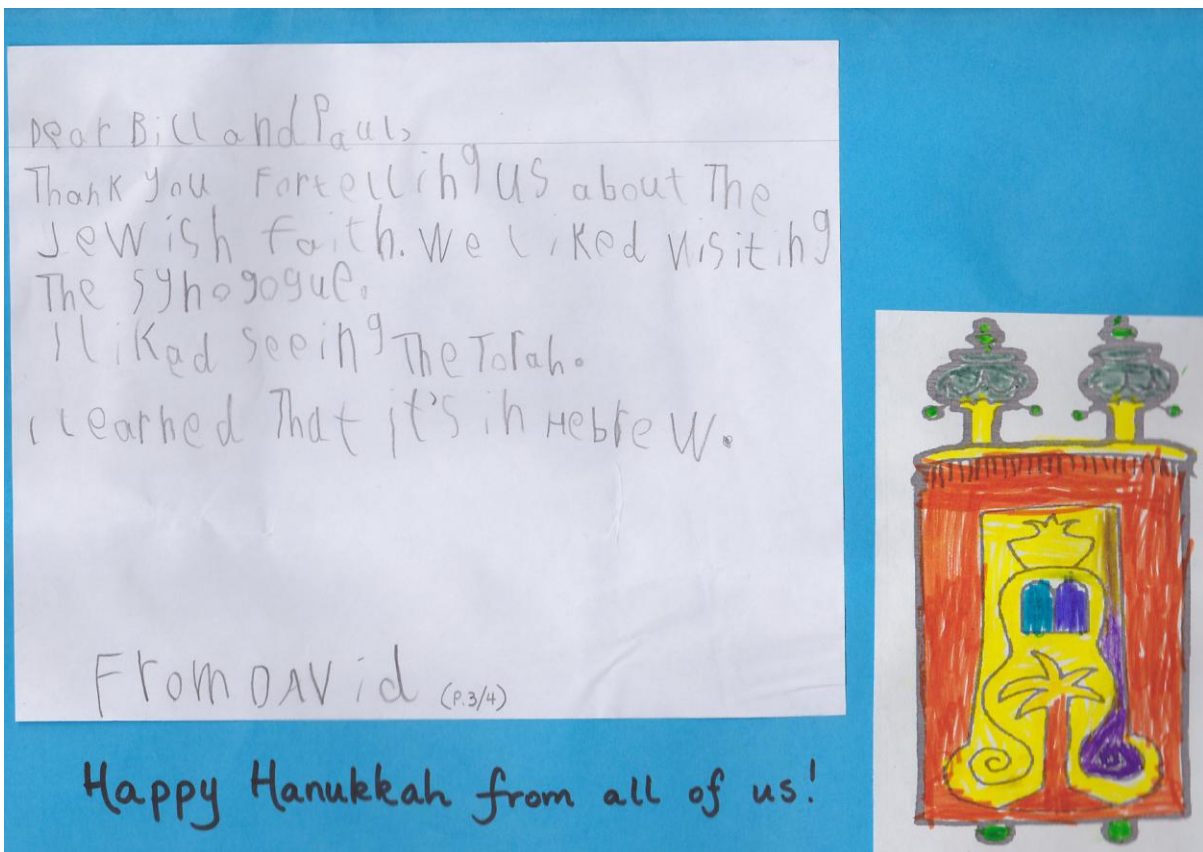 Dear Bill and Paul,
Thank you for telling us about The
Jewish faith. We liked visiting
The synogogue.
I liked seeing The Torah.
I learned That it's in Hebrew.
From DAVid (P.3/4)
Happy Hanukkah from all of us!